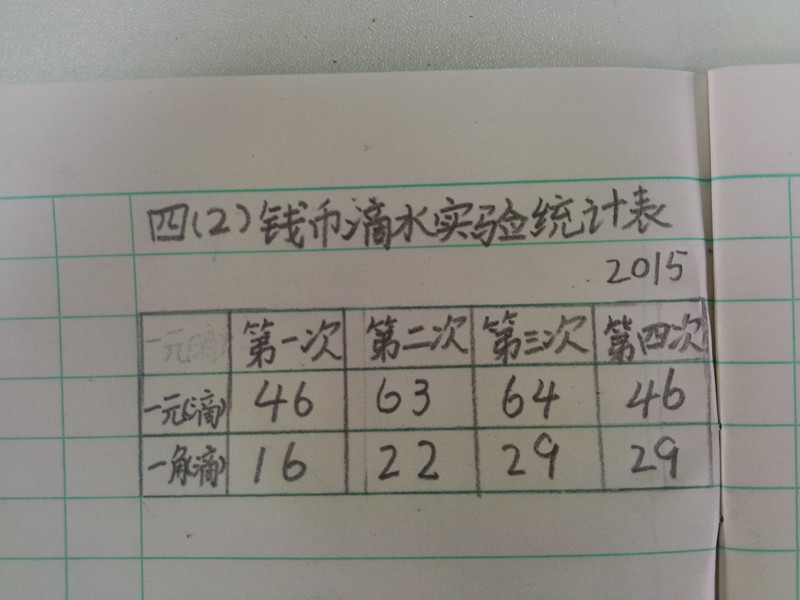 四(2)钱币滴水实验统计表
2015
一元(滴) 第一次 第二次 第三次 第四次
一元(滴) 46 63 64 46
一角(滴) 16 22 29 29